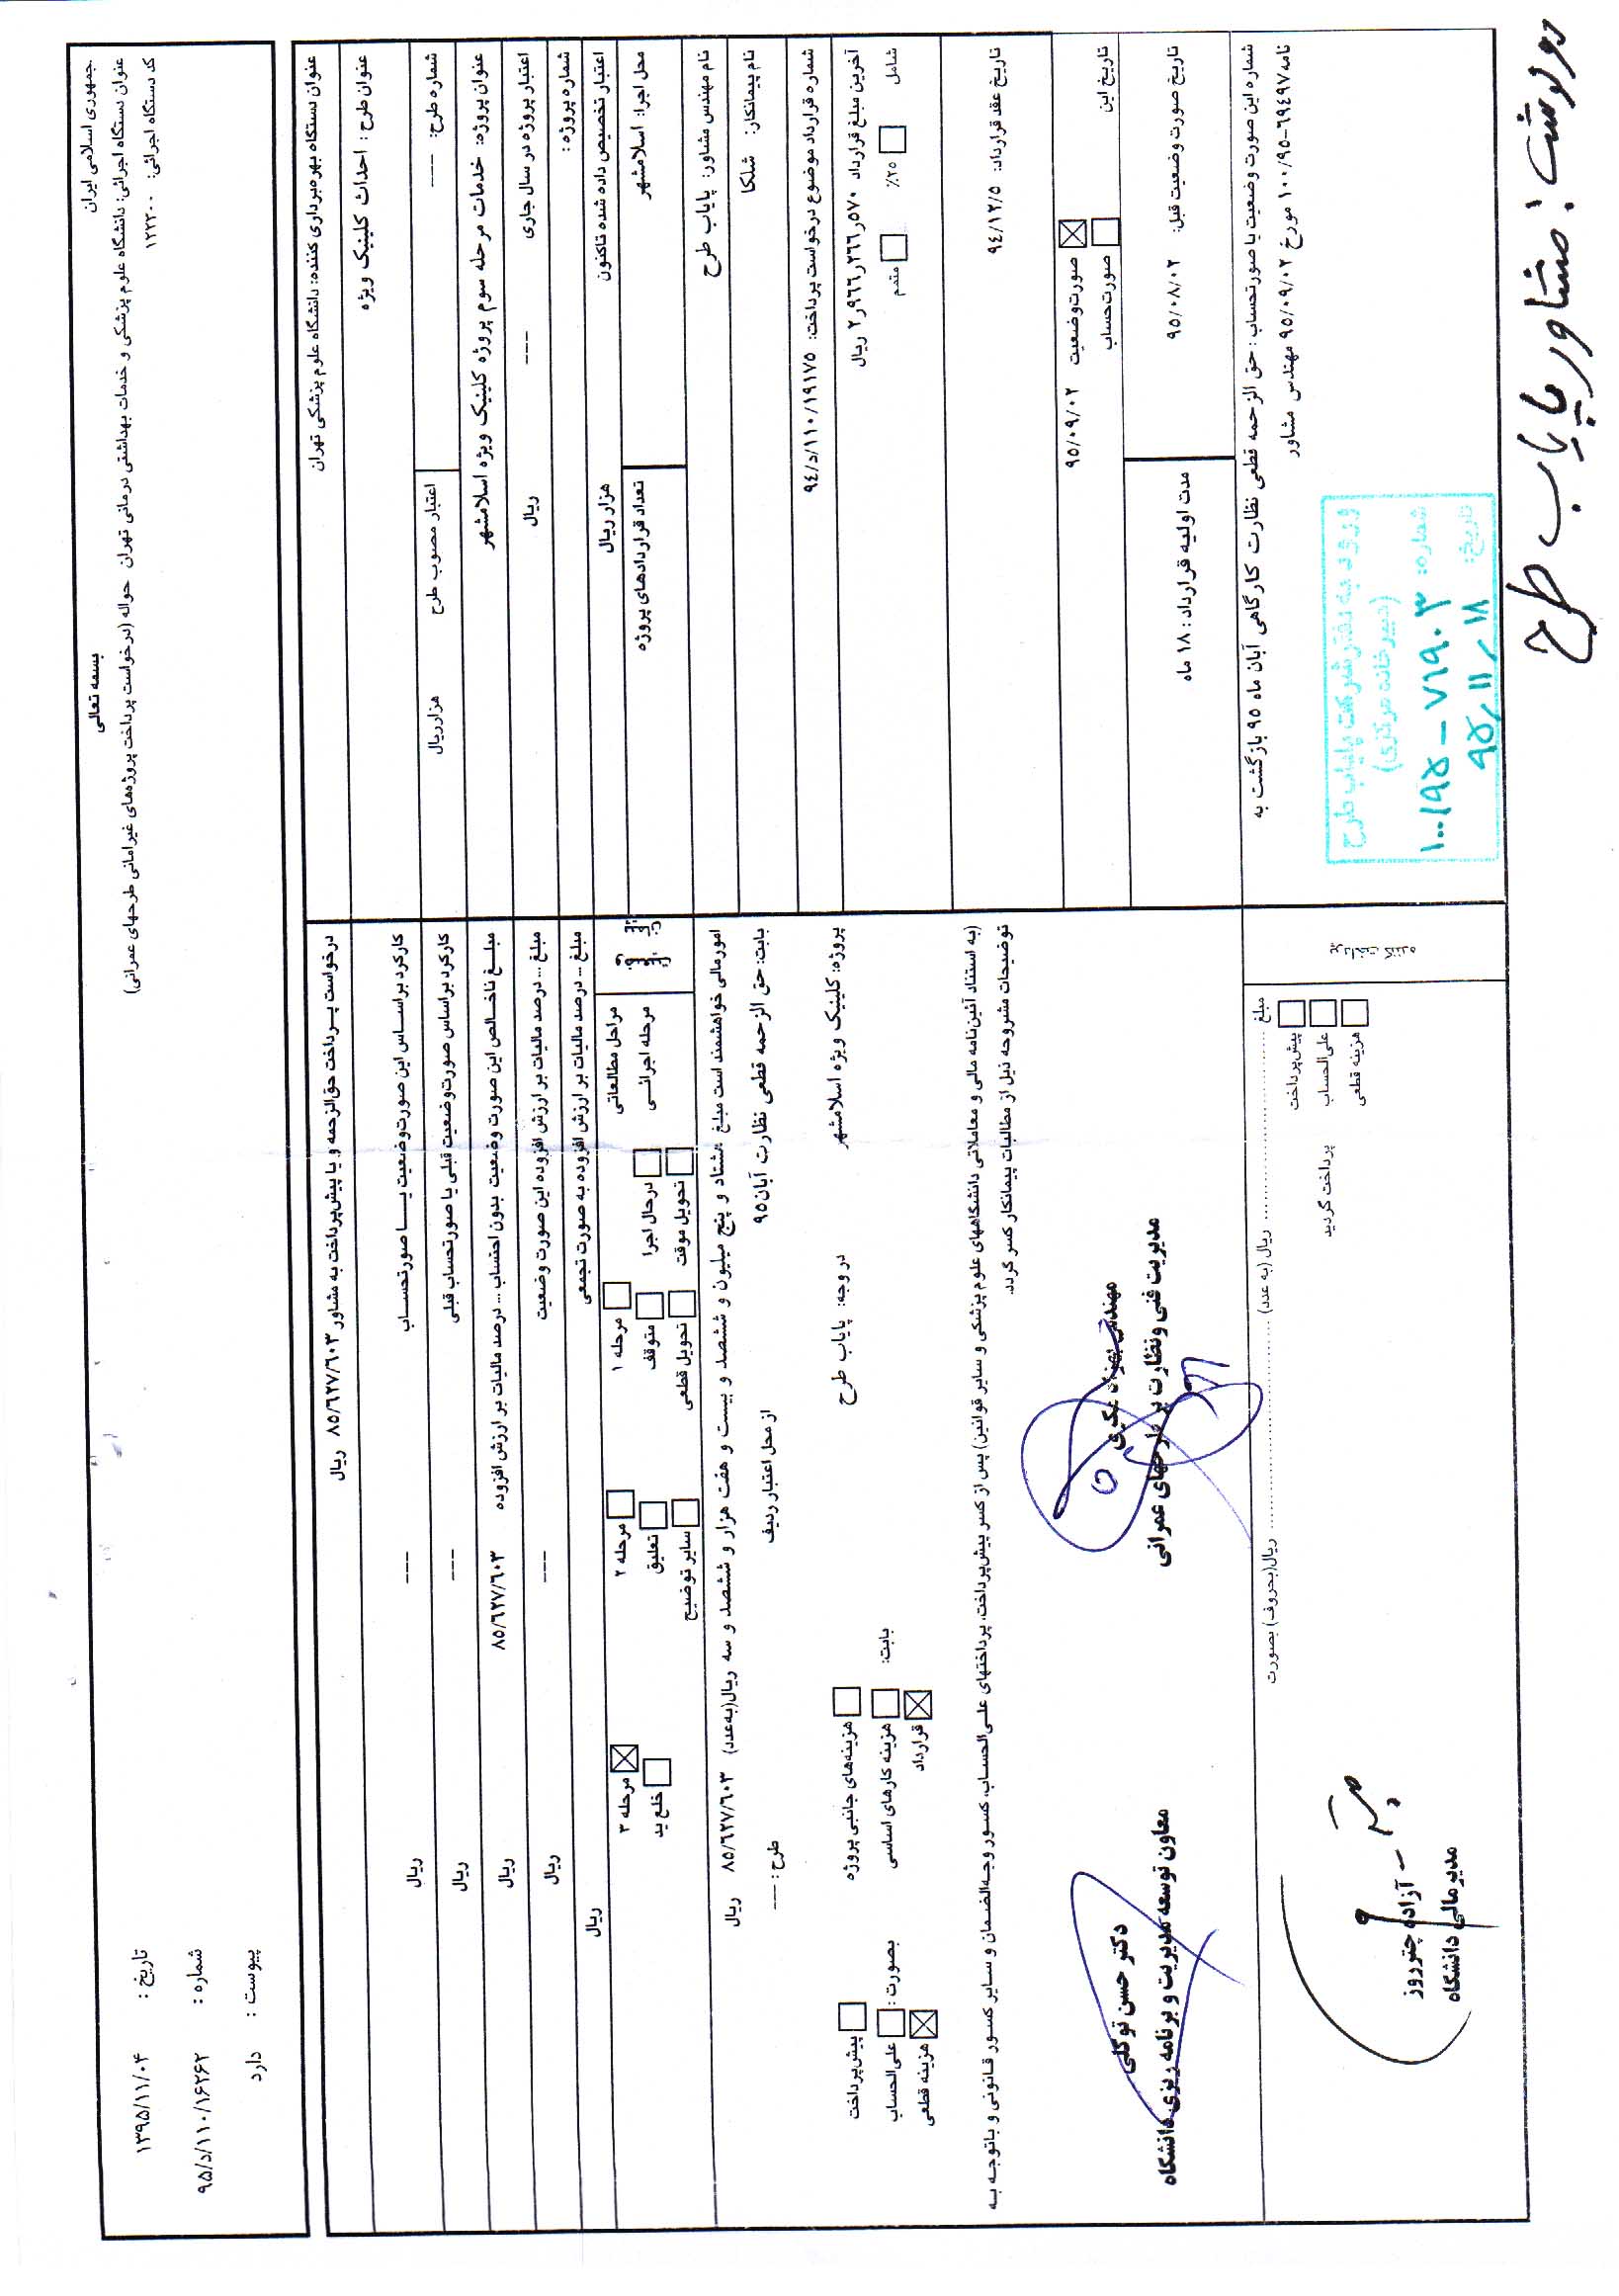 بسمه تعالی
جمهوری اسلامی ایران
عنوان دستگاه اجرائی: دانشگاه علوم پزشکی و خدمات بهداشتی درمانی تهران حواله (درخواست پرداخت پروژه‌های غیرامانی طرحهای عمرانی)
کد دستگاه اجرائی: ۱۲۲۳۰۰
تاریخ : ۱۳۹۵/۱۱/۰۴
شماره : ۹۵/د/۱۱۰/۱۶۲۶۲
پیوست : دارد
عنوان دستگاه بهره‌برداری کننده: دانشگاه علوم پزشکی تهران
عنوان طرح : احداث کلینیک ویژه
شماره طرح: ---- اعتبار مصوب طرح هزارریال
عنوان پروژه: خدمات مرحله سوم پروژه کلینیک ویژه اسلامشهر
اعتبار پروژه در سال جاری --- ریال
شماره پروژه :
اعتبار تخصیص داده شده تاکنون هزار ریال
محل اجرا: اسلامشهر تعداد قراردادهای پروژه
نام مهندس مشاور: پایاب طرح
نام پیمانکار: شلکا
شماره قرارداد موضوع درخواست پرداخت: ۹۴/د/۱۱۰/۱۹۱۷۵
آخرین مبلغ قرارداد ۲٫۹۶۶٫۲۶۶٫۵۷۰ ریال
شامل ۲۵٪ متمم
تاریخ عقد قرارداد: ۹۴/۱۲/۵
تاریخ این صورت‌حساب
صورت‌وضعیت ۹۵/۰۹/۰۲
تاریخ صورت وضعیت قبل: ۹۵/۰۸/۰۲ مدت اولیه قرارداد : ۱۸ ماه
شماره این صورت وضعیت یا صورتحساب : حق الزحمه قطعی نظارت کارگاهی آبان ماه ۹۵ بازگشت به
نامه ۶۹۴۹۷-۱۰۰/۹۵ مورخ ۹۵/۰۹/۰۲ مهندس مشاور
ورود به دفتر شرکت پایاب طرح
(دبیرخانه مرکزی)
شماره: ۱۰۰/۹۵ – ۷۶۹۰۳
تاریخ: ۹۵/۱۱/۱۸
درخواست پرداخت حق‌الزحمه و یا پیش‌پرداخت به مشاور ۸۵/۶۲۷/۶۰۳ ریال
کارکرد براساس این صورت‌وضعیت یا صورتحساب --- ریال
کارکرد براساس صورت‌وضعیت قبلی یا صورتحساب قبلی --- ریال
مبلغ ناخالص این صورت وضعیت بدون احتساب ... درصد مالیات بر ارزش افزوده ۸۵/۶۲۷/۶۰۳ ریال
مبلغ ... درصد مالیات بر ارزش افزوده این صورت وضعیت --- ریال
مبلغ ... درصد مالیات بر ارزش افزوده به صورت تجمعی ریال
مراحل مطالعاتی مرحله ۱ مرحله ۲ مرحله ۳
مرحله اجرائی درحال اجرا متوقف تعلیق خلع ید
تحویل موقت تحویل قطعی سایر توضیح
امورمالی خواهشمند است مبلغ هشتاد و پنج میلیون و ششصد و بیست و هفت هزار و ششصد و سه ریال(به‌عدد) ۸۵/۶۲۷/۶۰۳ ریال
بابت: حق الزحمه قطعی نظارت آبان۹۵ از محل اعتبار ردیف طرح : ---
پروژه: کلینیک ویژه اسلامشهر در وجه: پایاب طرح
بابت: هزینه‌های جانبی پروژه هزینه کارهای اساسی قرارداد
بصورت : پیش‌پرداخت علی‌الحساب هزینه قطعی
(به استناد آئین‌نامه مالی و معاملاتی دانشگاههای علوم پزشکی و سایر قوانین) پس از کسر پیش‌پرداخت، پرداختهای علی‌الحساب، کسور وجه‌الضمان و سایر کسور قانونی و باتوجه به
توضیحات مشروحه ذیل از مطالبات پیمانکار کسر گردد.
مدیریت فنی ونظارت بر طرحهای عمرانی
دکتر حسن توکلی
معاون توسعه مدیریت و برنامه ریزی دانشگاه
مبلغ ........ ریال (به عدد) ........ ریال(بحروف) بصورت
پیش‌پرداخت
علی‌الحساب پرداخت گردید
هزینه قطعی
آزاده چترروز
مدیر مالی دانشگاه
رونوشت: مشاور پایاب طرح